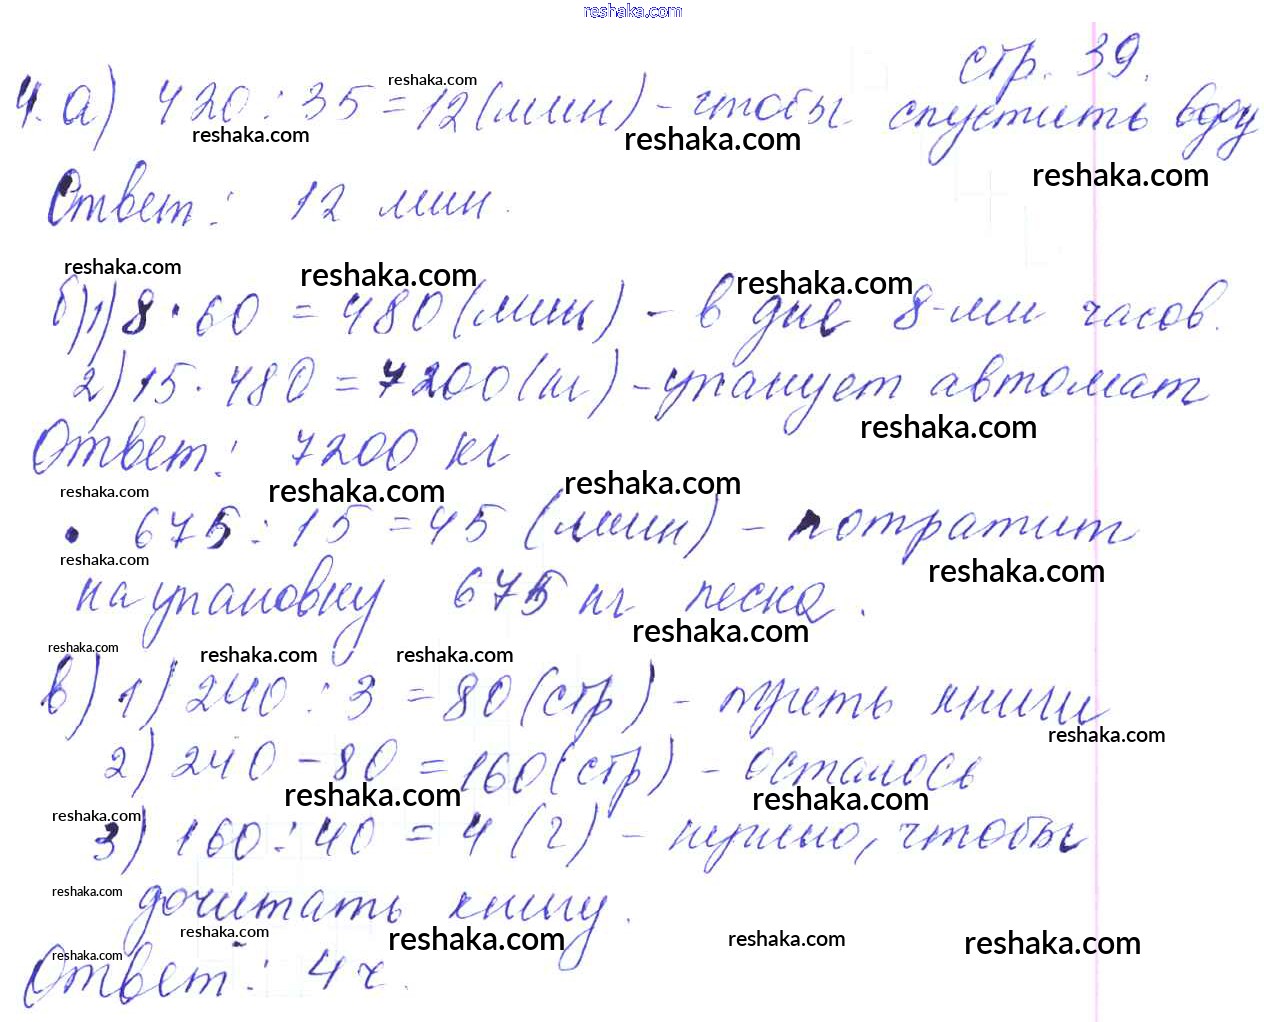 reshaka.com
стр. 39.
4. а) 420 : 35 = 12 (мин) - чтобы спустить воду
reshaka.com
reshaka.com reshaka.com
reshaka.com
Ответ: 12 мин.
reshaka.com reshaka.com reshaka.com
б) 1) 8 · 60 = 480 (мин) - в дне 8-ми часов.
2) 15 · 480 = 7200 (кг) - упакует автомат
reshaka.com
Ответ: 7200 кг
reshaka.com reshaka.com reshaka.com
• 675 : 15 = 45 (мин) - потратит
reshaka.com reshaka.com
на упаковку 675 кг песка.
reshaka.com
reshaka.com reshaka.com reshaka.com
в) 1) 240 : 3 = 80 (стр) - треть книги
reshaka.com
2) 240 - 80 = 160 (стр) - осталось
reshaka.com reshaka.com
reshaka.com
3) 160 : 40 = 4 (г) - нужно, чтобы
reshaka.com
дочитать книгу.
reshaka.com reshaka.com reshaka.com reshaka.com
reshaka.com
Ответ: 4 ч.